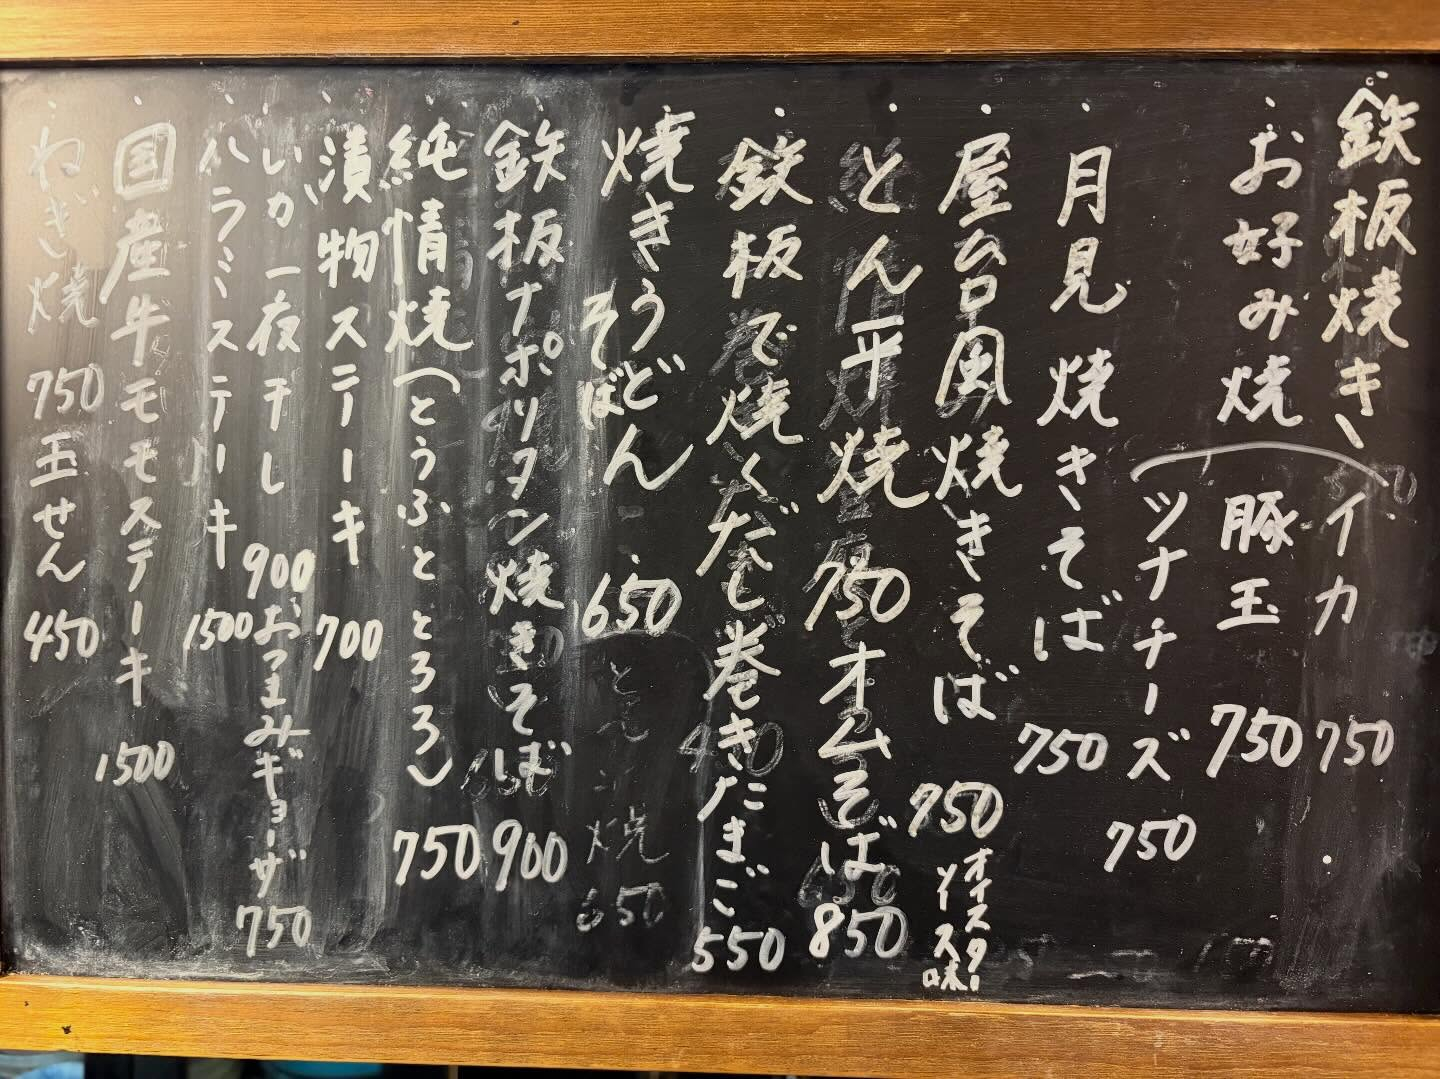 鉄板焼き
イカ 750
お好み焼 豚玉 750
ツナチーズ 750
月見焼きそば 750
屋台風焼きそば 750
オイスター
ソース味
とん平焼 750
オムそば 850
鉄板で焼くだし巻きたまご 550
焼きうどん 650
そば
鉄板ナポリタン焼きそば 900
純情焼(とうふととろろ) 750
漬物ステーキ 700
いか一夜干し 900
おつまみギョーザ 750
ハラミステーキ 1500
国産牛モモステーキ 1500
ねぎ焼 750
玉せん 450